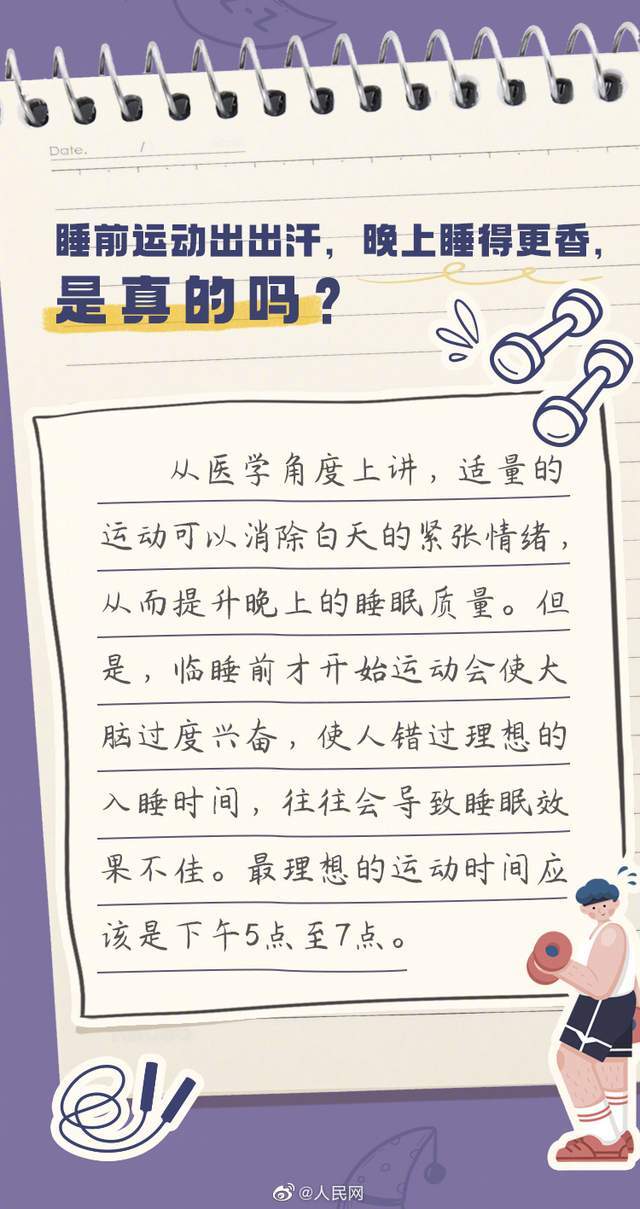 Date. /
睡前运动出出汗，晚上睡得更香，
是真的吗？
从医学角度上讲，适量的
运动可以消除白天的紧张情绪，
从而提升晚上的睡眠质量。但
是，临睡前才开始运动会使大
脑过度兴奋，使人错过理想的
入睡时间，往往会导致睡眠效
果不佳。最理想的运动时间应
该是下午5点至7点。
@人民网